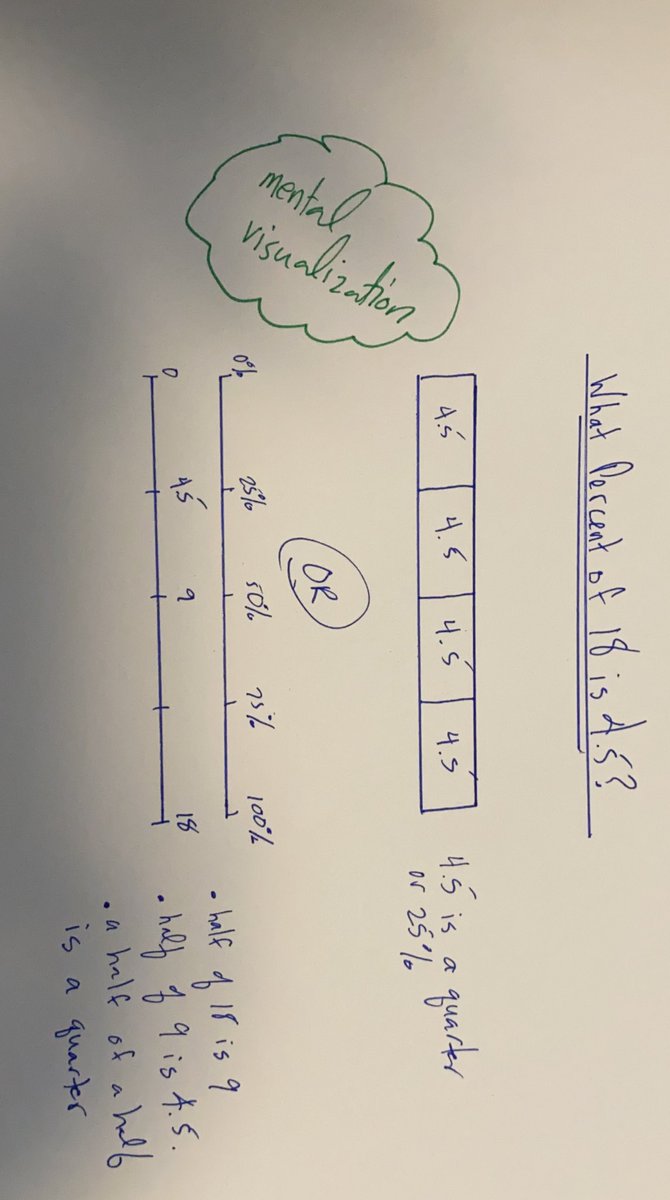 What Percent of 18 is 4.5?
mental
visualization
4.5 4.5 4.5 4.5
4.5 is a quarter
or 25%
OR
0% 25% 50% 75% 100%
0 4.5 9 18
• half of 18 is 9
• half of 9 is 4.5.
• a half of a half
is a quarter